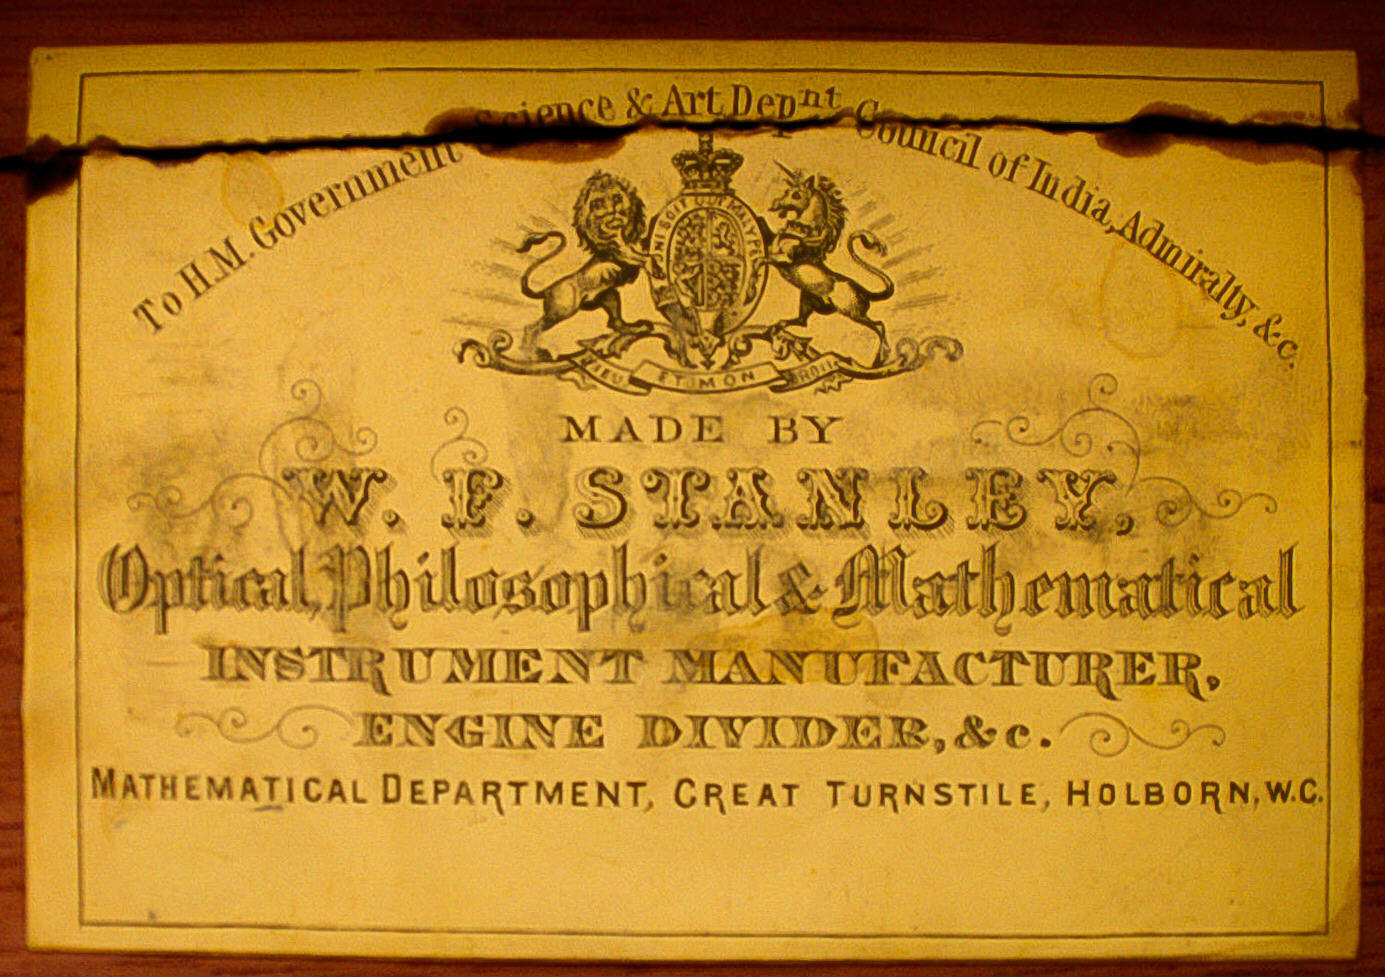 To H.M. Government Science & Art Depnt Council of India, Admiralty, &c.
NI SOIT QUI MAL Y PE
DIEU ET MON DROIT
MADE BY
W. F. STANLEY,
Optical, Philosophical & Mathematical
INSTRUMENT MANUFACTURER,
ENGINE DIVIDER, &c.
MATHEMATICAL DEPARTMENT, GREAT TURNSTILE, HOLBORN, W.C.